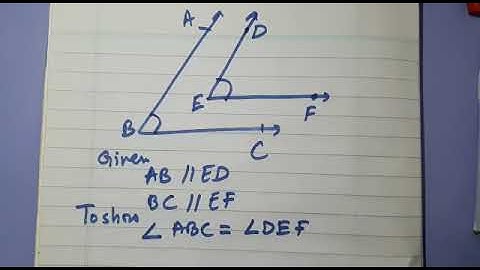 A
D
E
F
B
C
Given
AB // ED
BC // EF
To show
∠ ABC = ∠DEF